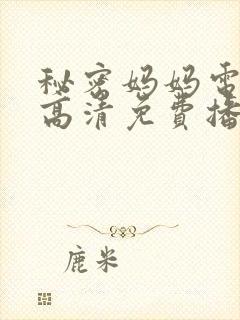 秘密妈妈电
高清免费播
鹿米